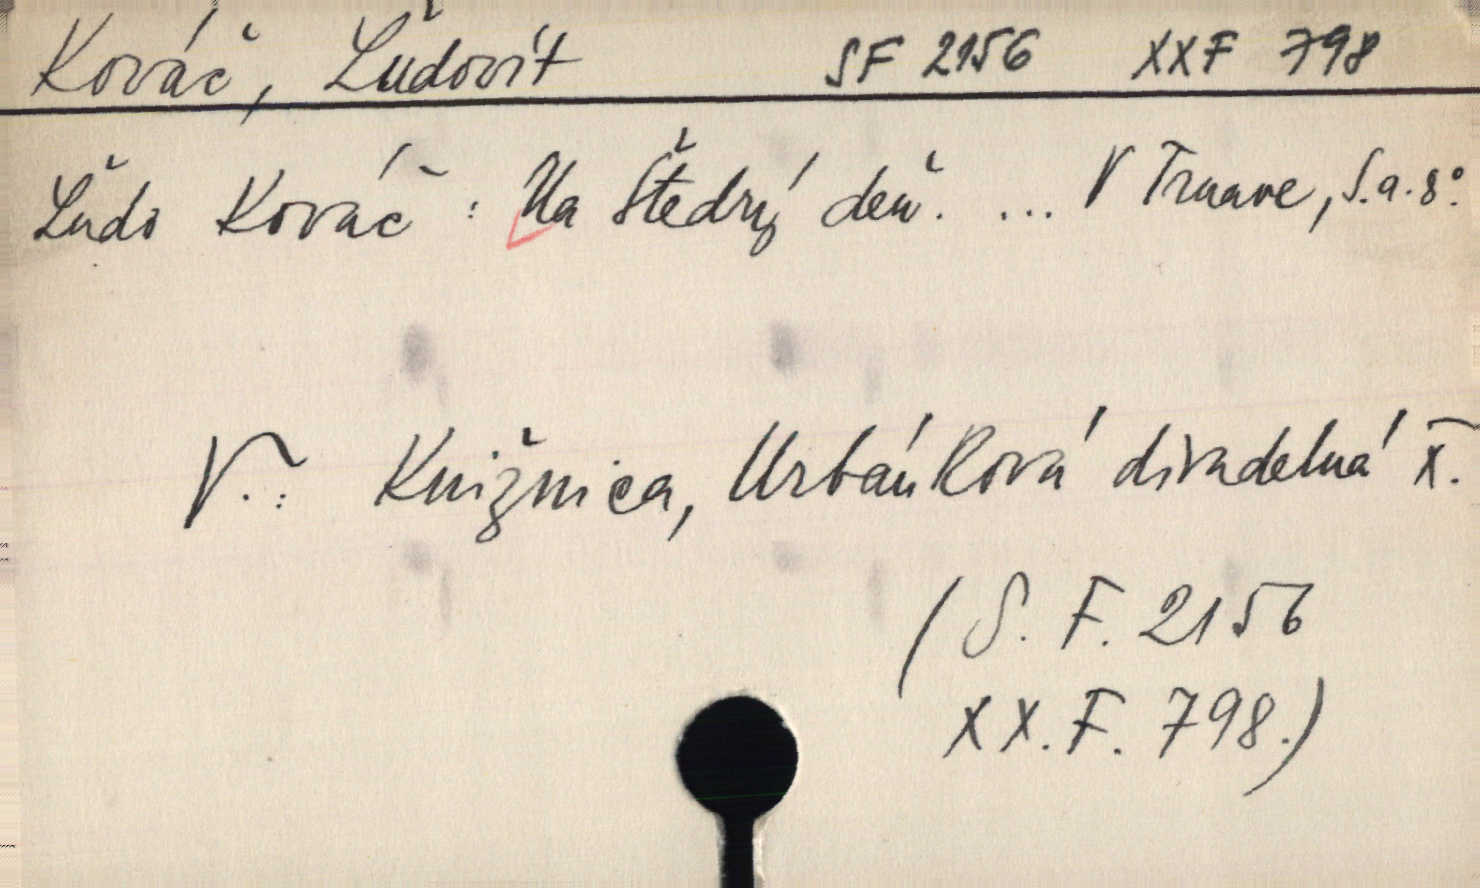 Kováč, Ľudovít SF 2156 XXF 798
Ľudo Kováč: Na Štedrý deň. ... V Trnave, S.a. 8°.
V.: Knižnica, Urbánková divadelná X.
(S. F. 2156
XX. F. 798.)